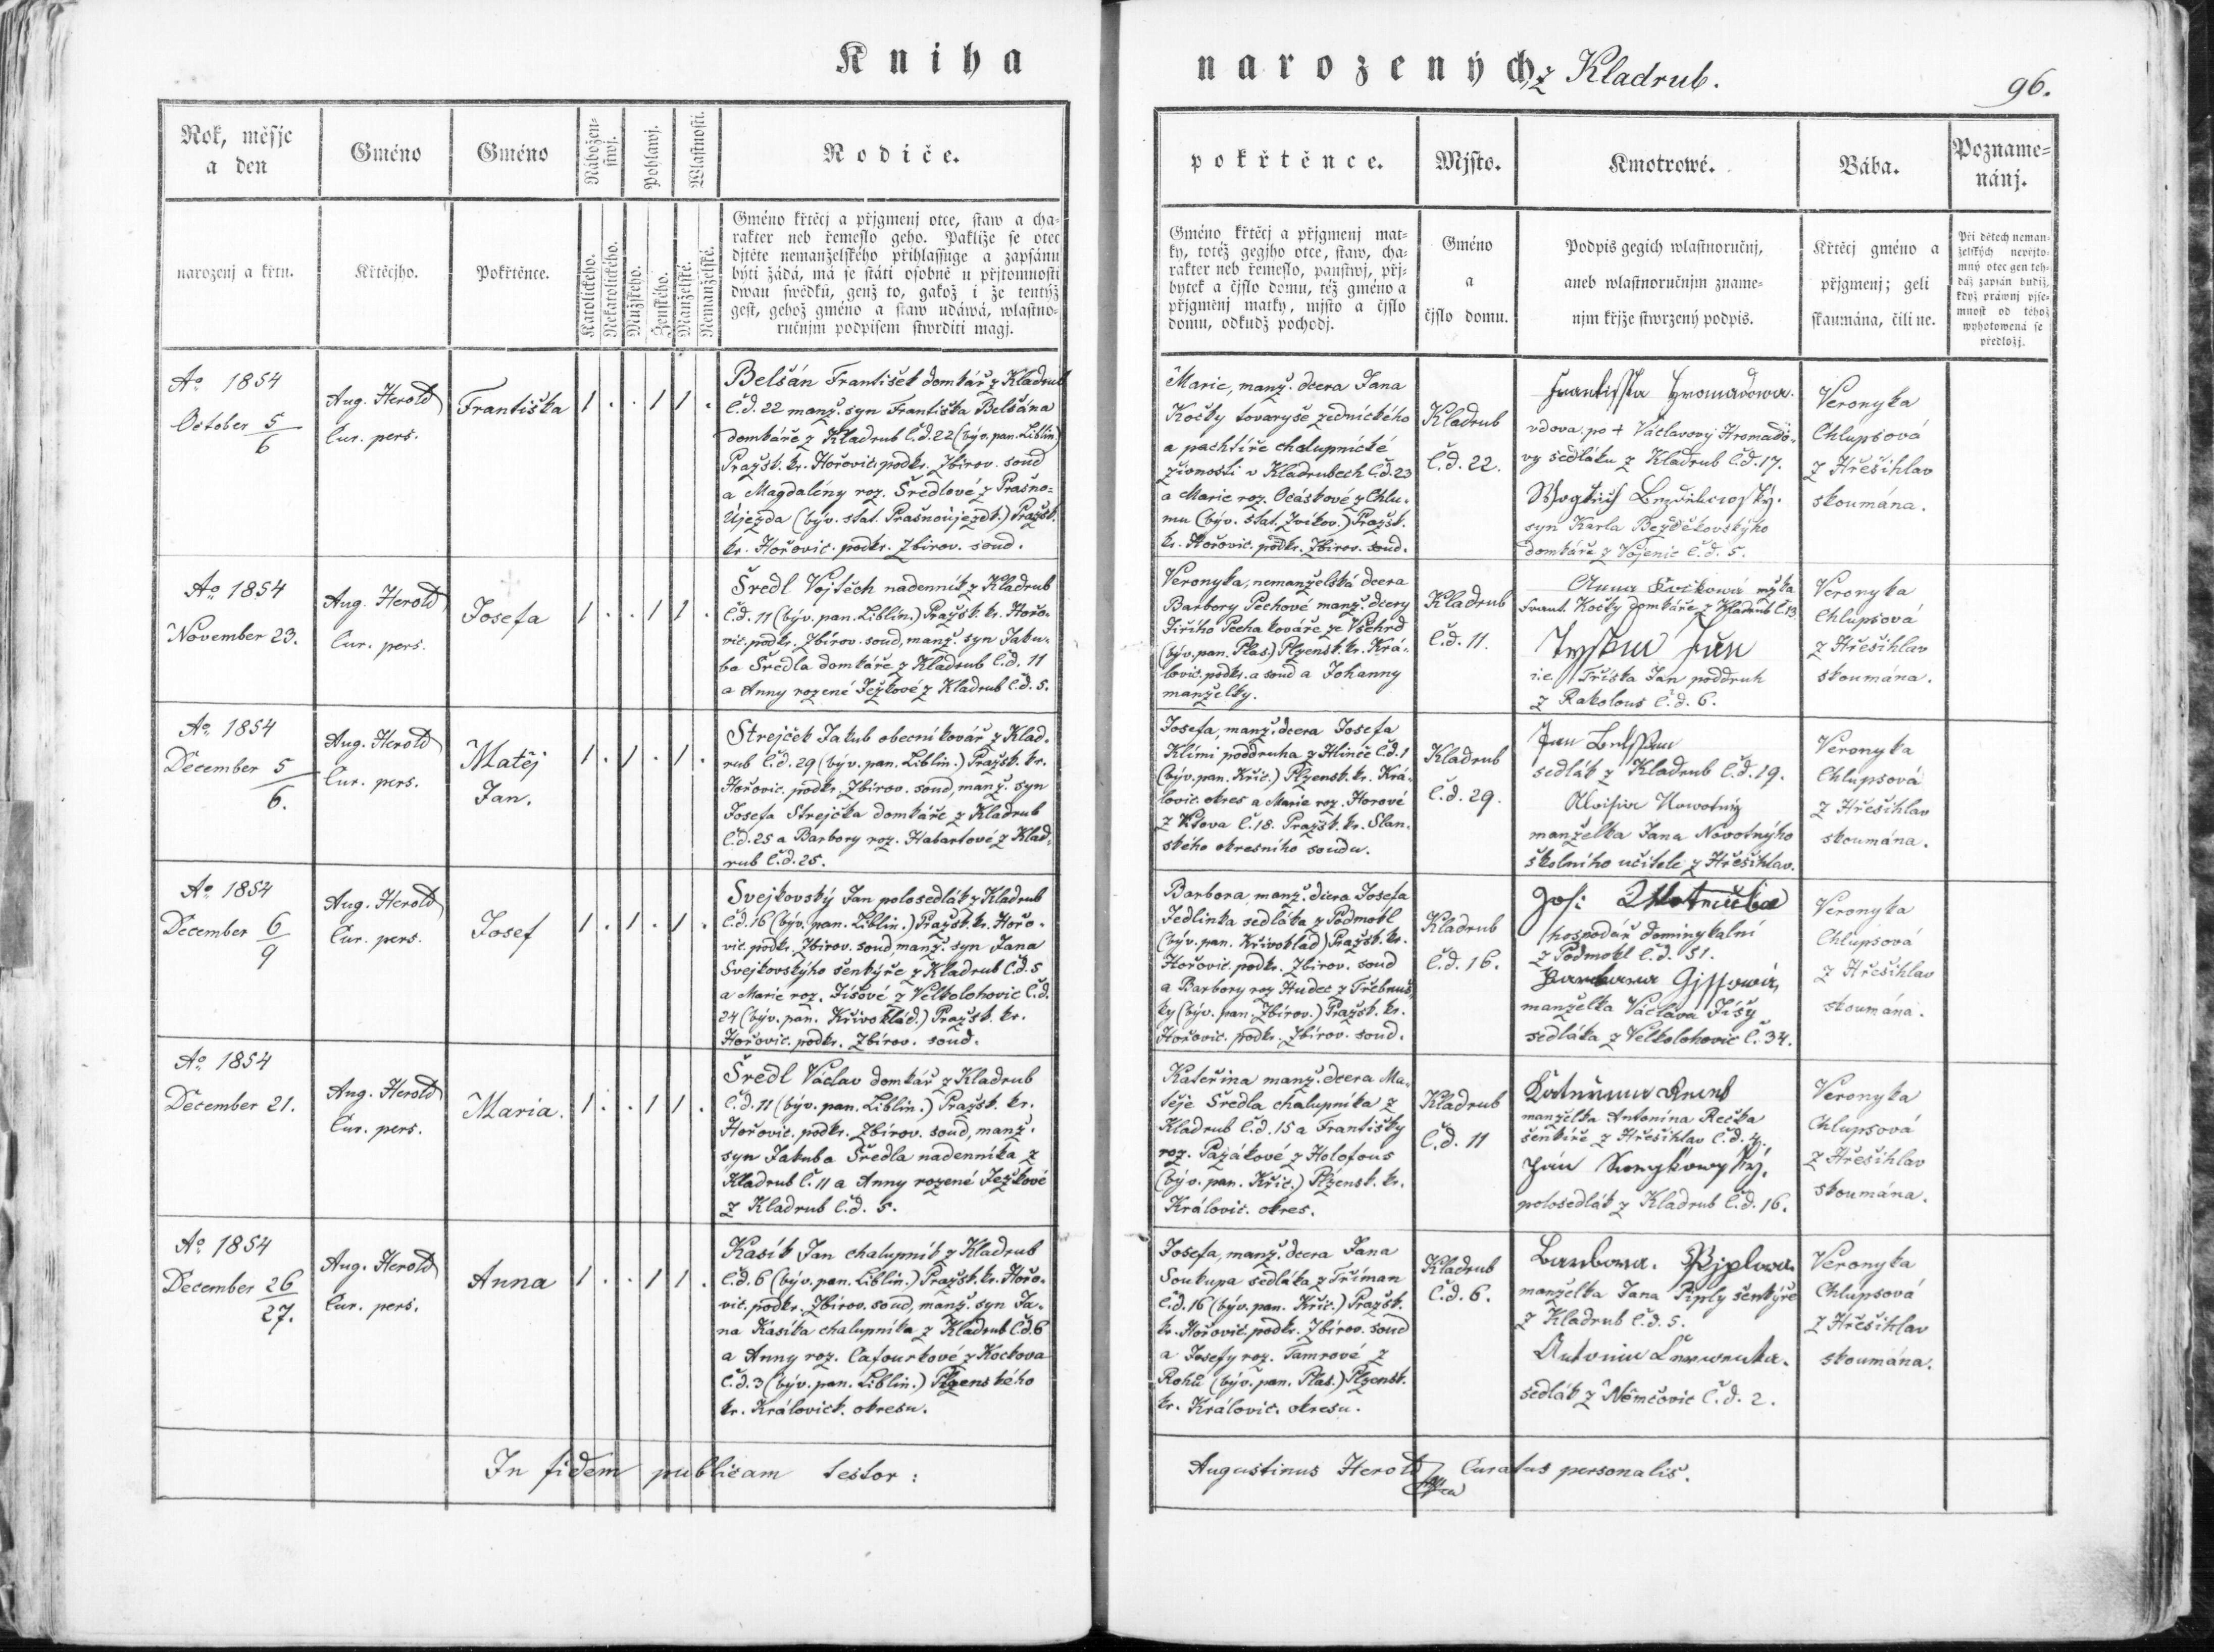 Kniha
narozených z Kladrub.
96.
Rok, měsjc
a den
Gméno
Gméno
Nábožen-
stwj.
Pohlawj.
Wlastnosti.
Rodiče.
narozenj a křtu.
Křtěcjho.
Pokřtěnce.
Katolického.
Nekatolického.
Mužského.
Ženského.
Manželské.
Nemanželské.
Gméno křtěcj a přjgmenj otce, staw a cha-
rakter neb řemeslo geho. Pakliže se otec
djtěte nemanželského přihlassuge a zapsánu
býti žádá, má se státi osobně u přjtomnosti
dwau swědků, genž to, gakož i že tentýž
gest, gehož gméno a staw udáwá, wlastno-
ručnjm podpisem stwrditi magj.
pokřtěnce.
Mjsto.
Kmotrowé.
Bába.
Pozname-
nánj.
Gméno křtěcj a přjgmenj mat-
ky, totéž gegjho otce, staw, cha-
rakter neb řemeslo, panstwj, přj-
bytek a čjslo domu, též gméno a
přjgměnj matky, mjsto a čjslo
domu, odkudž pochodj.
Gméno
a
čjslo domu.
Podpis gegich wlastnoručnj,
aneb wlastnoručnjm zname-
njm křjže stwrzený podpis.
Křtěcj gméno a
přjgmenj; geli
skaumána, čili ne.
Při dětech neman-
želských nepřjto-
mný otec gen teh-
dáž zapsán budiž,
když práwnj pjse-
mnost od téhož
wyhotowená se
předložj.
Ao 1854
October 5/6
Aug. Herold
Cur. pers.
Františka
1 . . 1 1 .
Belšán František domkář z Kladrub
č.d. 22 manž. syn Františka Belšána
domkáře z Kladrub č.d. 22 (býv. pan. Liblín)
Pražsk. kr. Hořovic. podkr. Zbirov. soud
a Magdalény roz. Šredlové z Prašno-
Újezda (býv. stat. Prašnoújezdt.) Pražsk.
kr. Hořovic. podkr. Zbirov. soud.
Marie, manž. dcera Jana
Kočky tovaryše zednického
a pachtíře chalupnické
živnosti v Kladrubech č.d. 23
a Marie roz. Ocáskové z Chlu-
mu (býv. stat. Zvíkov.) Pražsk.
kr. Hořovic. podkr. Zbirov. soud.
Kladrub
č.d. 22.
Frantisska Hromadowa.
vdova po + Václavovy Hromado-
vy sedláku z Kladrub č.d. 17.
Wogtiech Bezdiekowský.
syn Karla Bezděkovskýho
domkáře z Vojenic č.d. 5.
Veronyka
Chlupsová
z Hřešihlav
skoumána.
Ao 1854
November 23.
Aug. Herold
Cur. pers.
Josefa
1 . . 1 1 .
Šredl Vojtěch nadenník z Kladrub
č.d. 11 (býv. pan. Liblín.) Pražsk. kr. Hořo-
vic. podkr. Zbirov. soud, manž. syn Jaku-
ba Šredla domkáře z Kladrub č.d. 11
a Anny rozené Ježkové z Kladrub č.d. 5.
Veronyka, nemanželská dcera
Barbory Pechové manž. dcery
Jiřího Pecha kováře ze Všehrd
(býv. pan. Plas.) Plzensk. kr. Krá-
lovic. podkr. a soud a Johanny
manželky.
Kladrub
č.d. 11.
Anna Kockowa mžka
Frant. Kočky domkáře z Kladrub č. 13.
Tryska Jan
i.e. Tříska Jan poddruh
z Rakolous č.d. 6.
Veronyka
Chlupsová
z Hřešihlav
skoumána.
Ao 1854
December 5/6.
Aug. Herold
Cur. pers.
Matěj
Jan.
1 . 1 . 1 .
Strejček Jakub obecní kovář z Klad-
rub č.d. 29 (býv. pan. Liblín.) Pražsk. kr.
Hořovic. podkr. Zbirov. soud, manž. syn
Josefa Strejčka domkáře z Kladrub
č.d. 25 a Barbory roz. Habartové z Klad-
rub č.d. 25.
Josefa, manž. dcera Josefa
Klími poddruha z Hlinče č.d. 1
(býv. pan. Křic.) Plzensk. kr. Krá-
lovic. okres a Marie roz. Horové
z Ktova č. 18. Pražsk. kr. Slan-
ského okresního soudu.
Kladrub
č.d. 29.
Jan Belssan
sedlák z Kladrub č.d. 19.
Aloisia Nowotný
manželka Jana Novotnýho
školního učitele z Hřešihlav.
Veronyka
Chlupsová
z Hřešihlav
skoumána.
Ao 1854
December 6/9
Aug. Herold
Cur. pers.
Josef
1 . 1 . 1 .
Svejkovský Jan polosedlák z Kladrub
č.d. 16 (býv. pan. Liblín.) Pražsk. kr. Hořo-
vic. podkr. Zbirov. soud, manž. syn Jana
Svejkovskýho šenkýře z Kladrub č.d. 5
a Marie roz. Jíšové z Velkolohovic č.d.
24 (býv. pan. Křivoklád.) Pražsk. kr.
Hořovic. podkr. Zbirov. soud.
Barbora, manž. dcera Josefa
Jedlinka sedláka z Podmokl
(býv. pan. Křivoklád) Pražsk. kr.
Hořovic. podkr. Zbirov. soud
a Barbory roz. Hudec z Třebnuš-
ky (býv. pan. Zbirov.) Pražsk. kr.
Hořovic. podkr. Zbirov. soud.
Kladrub
č.d. 16.
Jos:
hospodář dominykalní
z Podmokl č.d. 51.
Barbara Gissowá,
manželka Václava Jíšy
sedláka z Velkolohovic č. 34.
Veronyka
Chlupsová
z Hřešihlav
skoumána.
Ao 1854
December 21.
Aug. Herold
Cur. pers.
Maria.
1 . . 1 1 .
Šredl Václav domkář z Kladrub
č.d. 11 (býv. pan. Liblín.) Pražsk. kr.
Hořovic. podkr. Zbirov. soud, manž.
syn Jakuba Šredla nadenníka z
Kladrub č. 11 a Anny rozené Ježkové
z Kladrub č.d. 5.
Kateřina manž. dcera Ma-
těje Šredla chalupníka z
Kladrub č.d. 15 a Františky
roz. Pažákové z Holofous
(býv. pan. Křic.) Plzensk. kr.
Královic. okres.
Kladrub
č.d. 11
manželka Antonína Rečka
šenkíře z Hřešihlav č.d. 4.
Ján Sweykowský.
polosedlák z Kladrub č.d. 16.
Veronyka
Chlupsová
z Hřešihlav
skoumána.
Ao 1854
December 26/27.
Aug. Herold
Cur. pers.
Anna
1 . . 1 1 .
Kasík Jan chalupník z Kladrub
č.d. 6 (býv. pan. Liblín.) Pražsk. kr. Hořo-
vic. podkr. Zbirov. soud, manž. syn Ja-
na Kasíka chalupníka z Kladrub č.d. 6
a Anny roz. Cafourkové z Kockova
č.d. 3 (býv. pan. Liblín.) Plzenského
kr. Královick. okresu.
Josefa, manž. dcera Jana
Soukupa sedláka z Tříman
č.d. 16 (býv. pan. Křic.) Pražsk.
kr. Hořovic. podkr. Zbirov. soud
a Josefy roz. Tamrové z
Rohů (býv. pan. Plas.) Plzensk.
kr. Královic. okresu.
Kladrub
č.d. 6.
Barbora. Pjplowa.
manželka Jana Piply šenkýře
z Kladrub č.d. 5.
Antonin Lerwenka.
sedlák z Němčovic č.d. 2.
Veronyka
Chlupsová
z Hřešihlav
skoumána.
In fidem publicam testor:
Augustinus Herold Curatus personalis.